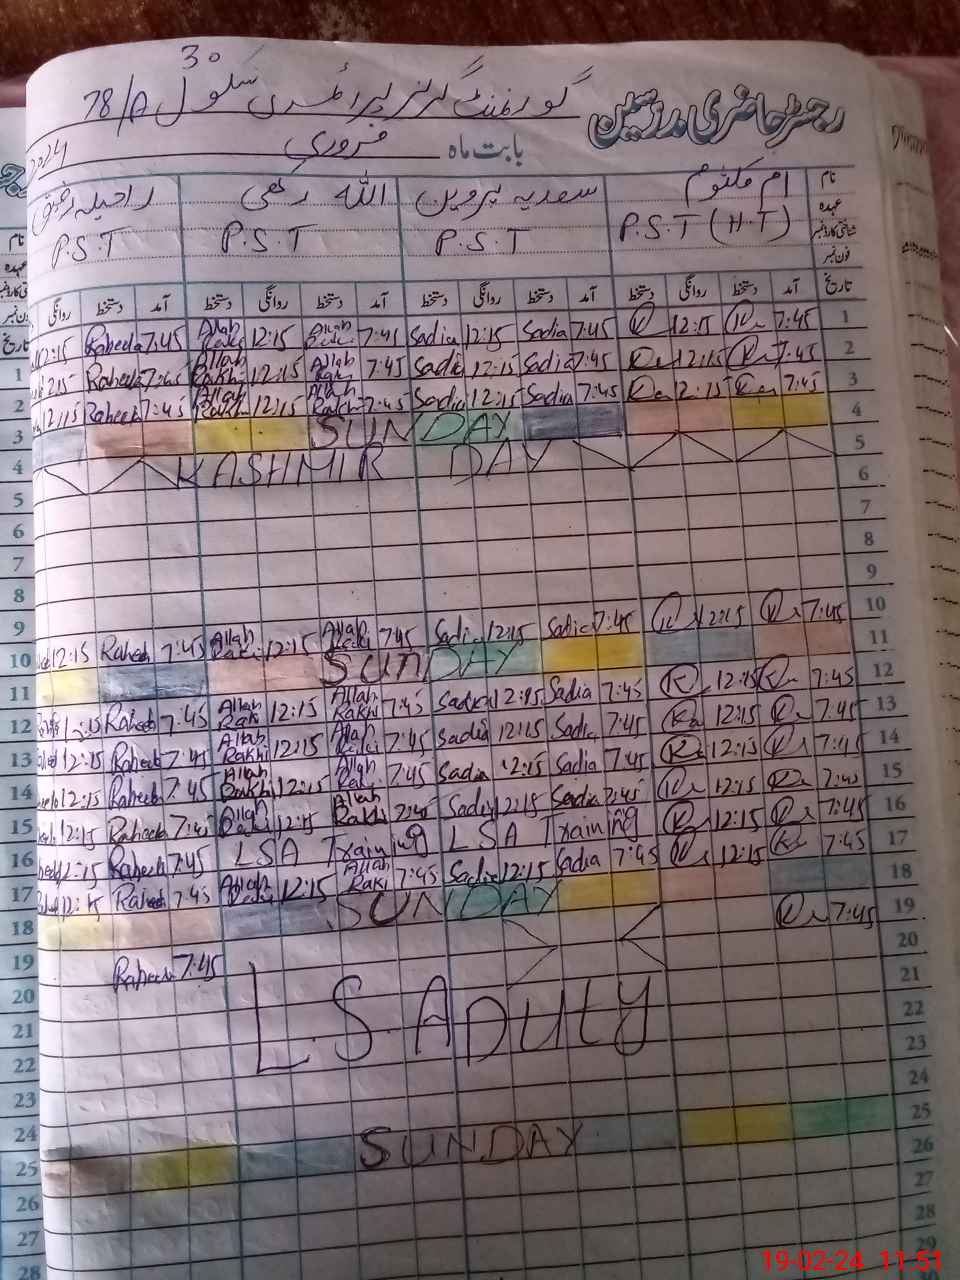 رجسٹر حاضری مدرسین گورنمنٹ گرلز پرائمری سکول 30
78/A
بابت ماہ فروری 2024
نام ام کلثوم سعدیہ پروین اللہ رکھی راحیلہ رفیق
عہدہ P.S.T (H.T) P.S.T P.S.T P.S.T
شناختی کارڈ نمبر
فون نمبر
تاریخ آمد دستخط روانگی دستخط آمد دستخط روانگی دستخط آمد دستخط روانگی دستخط آمد دستخط روانگی
1 7:45 12:15 7:45 Sadia 12:15 Sadia 7:45 Allah 12:15 Allah 7:45 Raheela 12:15
2 7:45 12:15 7:45 Sadia 12:15 Sadia 7:45 Allah Rakhi 12:15 Allah Rakhi 7:45 Raheela 12:15
3 7:45 12:15 7:45 Sadia 12:15 Sadia 7:45 Allah Rakhi 12:15 Allah Rakhi 7:45 Raheela 12:15
4 SUNDAY
5 KASHMIR DAY
6
7
8
9
10 7:45 12:15 7:45 Sadia 12:15 Sadia 7:45 Allah 12:15 Allah 7:45 Raheela 12:15
11 SUNDAY
12 7:45 12:15 7:45 Sadia 12:15 Sadia 7:45 Allah Rakhi 12:15 Allah Rakhi 7:45 Raheela 12:15
13 7:45 12:15 7:45 Sadia 12:15 Sadia 7:45 Allah 12:15 Allah Rakhi 7:45 Raheela 12:15
14 7:45 12:15 7:45 Sadia 12:15 Sadia 7:45 Allah 12:15 Allah Rakhi 7:45 Raheela 12:15
15 7:45 12:15 7:45 Sadia 12:15 Sadia 7:45 Allah Rakhi 12:15 Allah 7:45 Raheela 12:15
16 7:45 12:15 LSA Training LSA Training 7:45 Raheela 12:15
17 7:45 12:15 7:45 Sadia 12:15 Sadia 7:45 Allah Raki 12:15 Allah 7:45 Raheela 12:15
18 SUNDAY
19 7:45 7:45 Raheela
20
21 LSA DUTY
22
23
24
25 SUNDAY
26
27
28
29
1
2
3
4
5
6
7
8
9
10
11
12
13
14
15
16
17
18
19
20
21
22
23
24
25
26
27
28
19-02-24 11:51